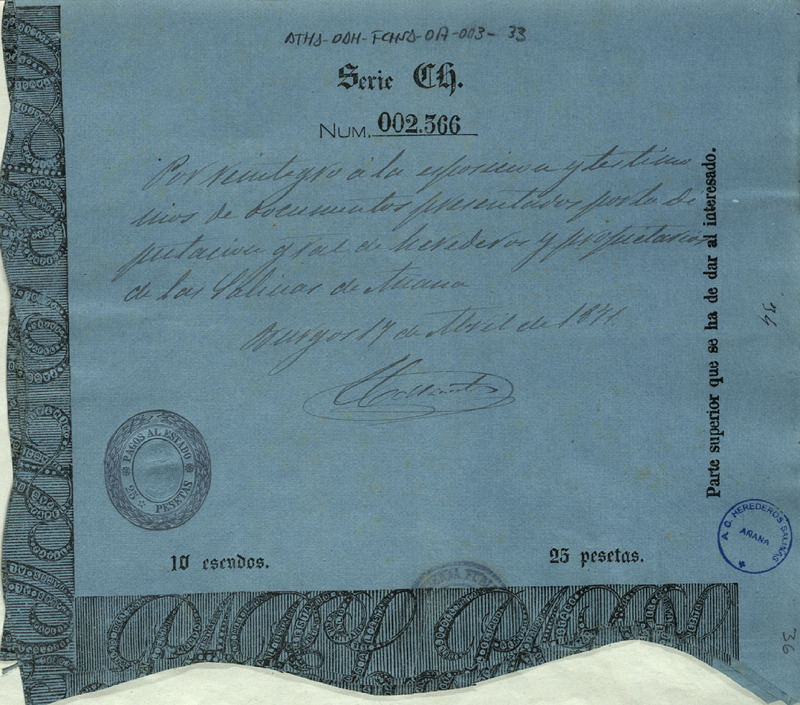 ATHA-DAH-FCHSA-OA-003-33
Serie Ch.
NUM. 002.566
Por reintegro á la esposicion y testimo
nios de documentos presentados por la Di
putacion gral de herederos y propietarios
de las Salinas de Añana
Burgos 17 de Abril de 1871
PAGOS AL ESTADO
25 PESETAS
10 escudos.
25 pesetas.
Parte superior que se ha de dar al interesado.
34
A. C. HEREDEROS SALINAS
AÑANA
36